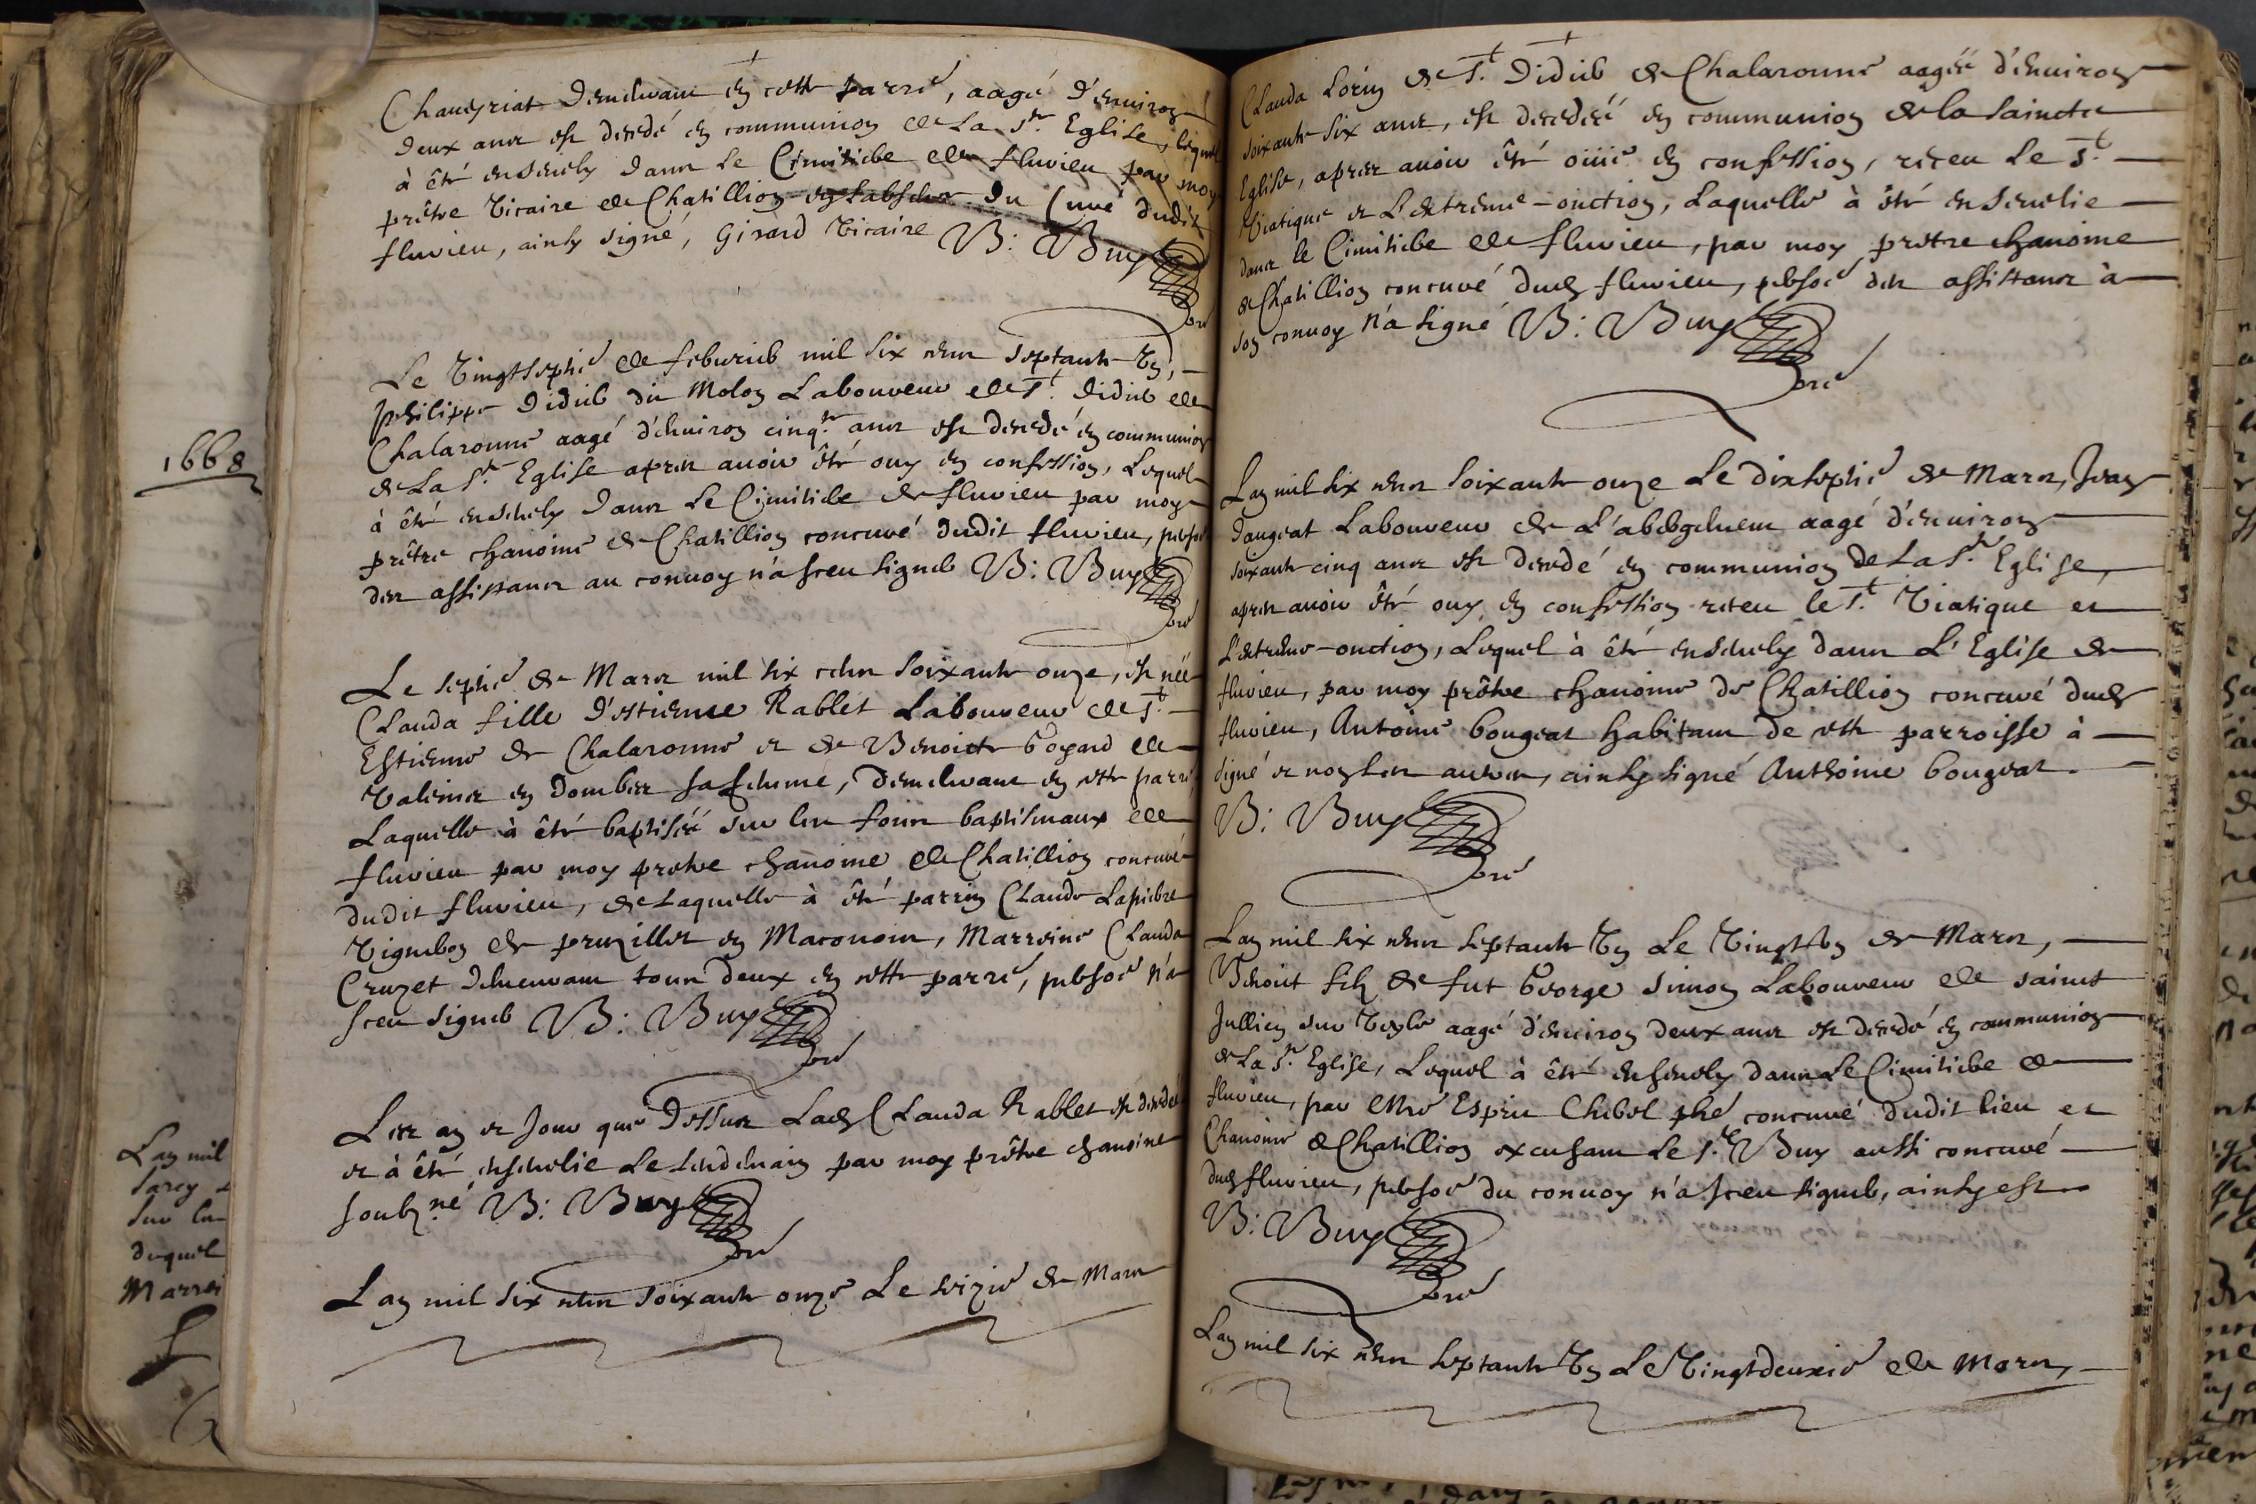 Chaveyriat demeurant en cette parre, aagé d'environ
deux ans est decedé en communion de la Ste Eglise, lequel
à êté ensevely dans le Cimitiere de fluvieu par moy
prêtre Vicaire de Chatillion en labsence du Curé dudit
fluvieu, ainsy signé, Girard Vicaire B: Buy
Le Vingtseptie de febvrier mil six cens septante Un,
philippe Didier du Molon Laboureur de St. Didier de
Chalaronne aagé d'environ cinqte ans est decedé en communion
de La Ste Eglise apres avoir êté ouy en confession, Lequel
à êté ensevely dans Le Cimitiere de fluvieu par moy
prêtre chanoine de Chatillion concuré dudit fluvieu, persoe
des assistans au convoy n'a sceu signer B: Buy
1668
Le septie de Mars mil six cens soixante onze, est née
Clauda fille d'Estienne Rablet Laboureur de St
Estienne de Chalaronne et de Benoiste Goyard de
Valeins en Dombes sa femme, demeurans en cette parre,
Laquelle à êté baptisée sur les fons baptismaux de
fluvieu par moy prêtre chanoine de Chatillion concuré
dudit fluvieu, de Laquelle à êté parrin Claude Lapierre
Vigneron de pruzilles en Maconois, Marreine Clauda
Cruzet demeurans tous deux en cette parre, persoe n'a
sceu signer B: Buy
Les an et Jour que Dessus Lade Clauda Rablet est decedée
et à êté ensevelie Le Lendemain par moy prêtre chanoine
soubzné B: Buy
Lan mil six cens soixante onze Le seizie de Mars
Lan mil
sur les
duquel
Marrei
Clauda Lorin de St. Didier de Chalaronne aagée d'environ
soixante six ans, est decedée en communion de la saincte
Eglise, apres avoir êté oüie en confession, receu Le St.
Viatique et L'extreme-onction, Laquelle à êté ensevelie
dans le Cimitiere de fluvieu, par moy prêtre chanoine
de Chatillion concuré dud fluvieu, persoe des assistans à
son convoy n'a signé B: Buy
Lan mil six cens soixante onze Le dixseptie de Mars, Jean
Dangeat Laboureur de L'abergement aagé d'environ
soixante cinq ans est decedé en communion de La Ste Eglise,
apres avoir êté ouy en confession receu le St. Viatique et
L'extreme-onction, Lequel à êté ensevely dans L'Eglise de
fluvieu, par moy prêtre chanoine de Chatillion concuré dud
fluvieu, Antoine bougeat habitant de cette parroisse à
signé et non les autres, ainsy signé Anthoine bougeat.
B: Buy
Lan mil six cens septante Un Le Vingt Un de Mars,
Benoit filz de fut George Simon Laboureur de sainct
Jullien sur Veyle aagé d'environ deux ans est decedé en communion
de La Ste Eglise, Lequel à êté ensevely dans Le Cimitiere de
fluvieu, par Mre Esprit Chibol pbre concuré dudit lieu et
Chanoine de Chatillion excusant Le Sr. Buy aussi concuré
dud fluvieu, persoe du convoy n'a sceu signer, ainsy est
B: Buy
Lan mil six cens septante Un Le Vingtdeuxie de Mars,